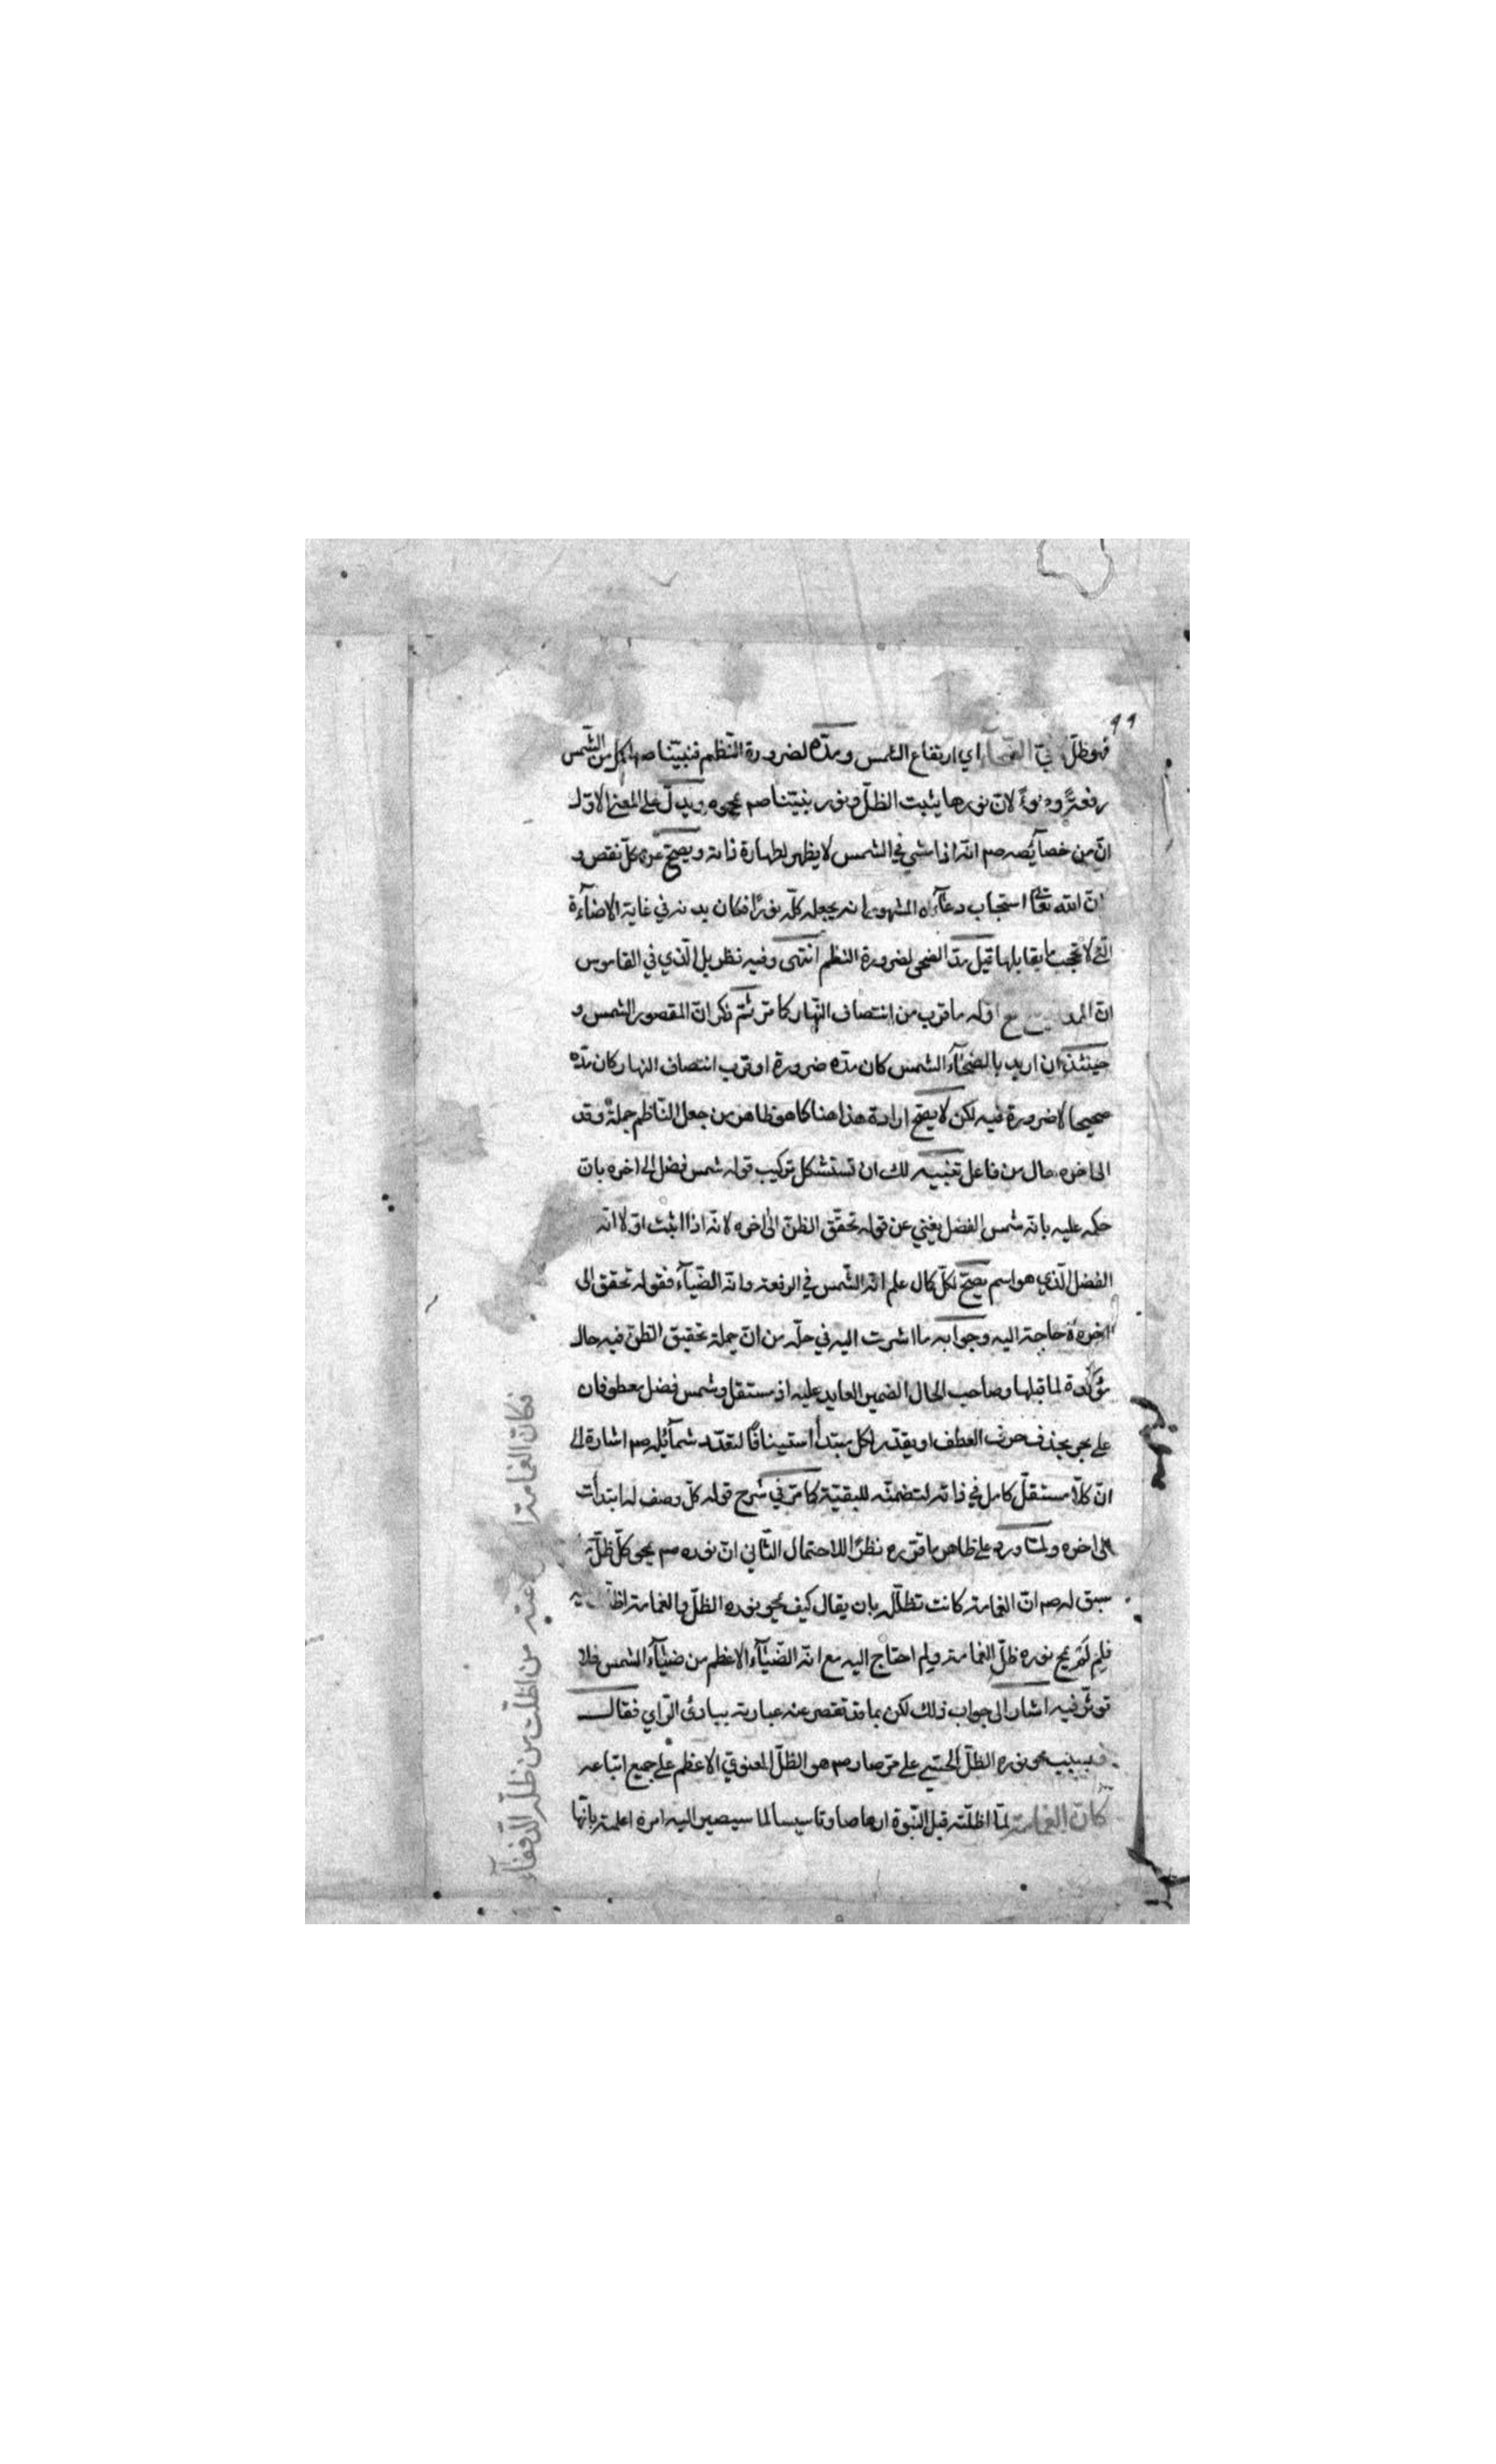 ٩٩
فهو ظلّ في الضحاء اي ارتفاع الشمس ومدّه لضرورة النّظم فنبيّنا صم اكمل من الشّمس
رفعةً وضوءً لانّ نورها يثبت الظلّ ونور نبيّنا صم يمحوه ويدلّ على المعنى الاوّل
انّ من خصآيصه صم انّه اذا مشي في الشمس لا يظهر لطهارة ذاته ويصحّ عن كلّ نقص و
انّ الله تعالى استجاب دعآءه المشهور انه يجعله كلّه نورًا فكان بدنه في غاية الاضآءة
الّتي لا تحجب ما يقابلها قيل مدّ الضحى لضرورة النظم انتهى وفيه نظر بل الّذي في القاموس
انّ المد اوله ما قرب من انتصاف النّهار كما مرّ ثمّ ذكر انّ المقصور الشمس و
حينئذ ان اريد بالضحآء الشمس كان مدّه ضرورة او قرب انتصاف النهار كان مدّه
صحيحا لا ضرورة فيه لكن لا يصحّ ارادة هذا هنا كما هو ظاهر من جعل النّاظم جملةً وقد
الى اخره حال من فاعل تنبيه لك ان تستشكل تركيب قوله شمس فضل الى اخره بانّ
حكمه عليه بانّه شمس الفضل يغني عن قوله تحقّق الظنّ الى اخره لانّه اذا اثبت اوّلا انّه
الفضل الّذي هو اسم يصحّ لكلّ كمال علم انّه الشّمس في الرفعة وانّه الضّيآء فقوله تحقق الى
اخره لا حاجة اليه وجوابه ما اشرت اليه في حلّه من انّ جملة تحقيق الظنّ فيه حال
مؤكّدة لما قبلها وصاحب الحال الضمير العايد عليه اذ مستقل وشمس فضل معطوفان
على بحر بحذف حرف العطف او يقدّر لكل مبتدأ استينافًا لتعدّد شمآئله صم اشارة الى
انّ كلاّ مستقلّ كامل في ذاته لتضمنّه للبقيّة كما مرّ في شرح قوله كلّ وصف له ابتدأت
الى اخره ولمّا ورد على ظاهر ما قرّره نظرًا للاحتمال الثّاني انّ نوره صم يمحى كلّ ظلّ
سبق له صم انّ الغمامة كانت تظلّله بان يقال كيف يمحو نوره الظلّ والغمامة
فلِمَ لَمْ يمح نوره ظلّ الغمامة ولم احتاج اليه مع انّه الضّيآء الاعظم من ضيآء الشمس فلا
توثّر فيه اشار الى جواب ذلك لكن بما قد تقصر عنه عبارته ببادئ الرّاي فقال
فبسبب محو نوره الظلّ الحسّي على مرّ صار صم هو الظلّ المعنوي الاعظم على جميع اتباعه
كانّ الغمامة لمّا اظلّته قبل النّبوة ارهاصا وتاسيسا لما سيصير اليه امره اعلمته بانّها
فكانّ الغمامة ا عته من اظلّت من ظلّه الدّففآء